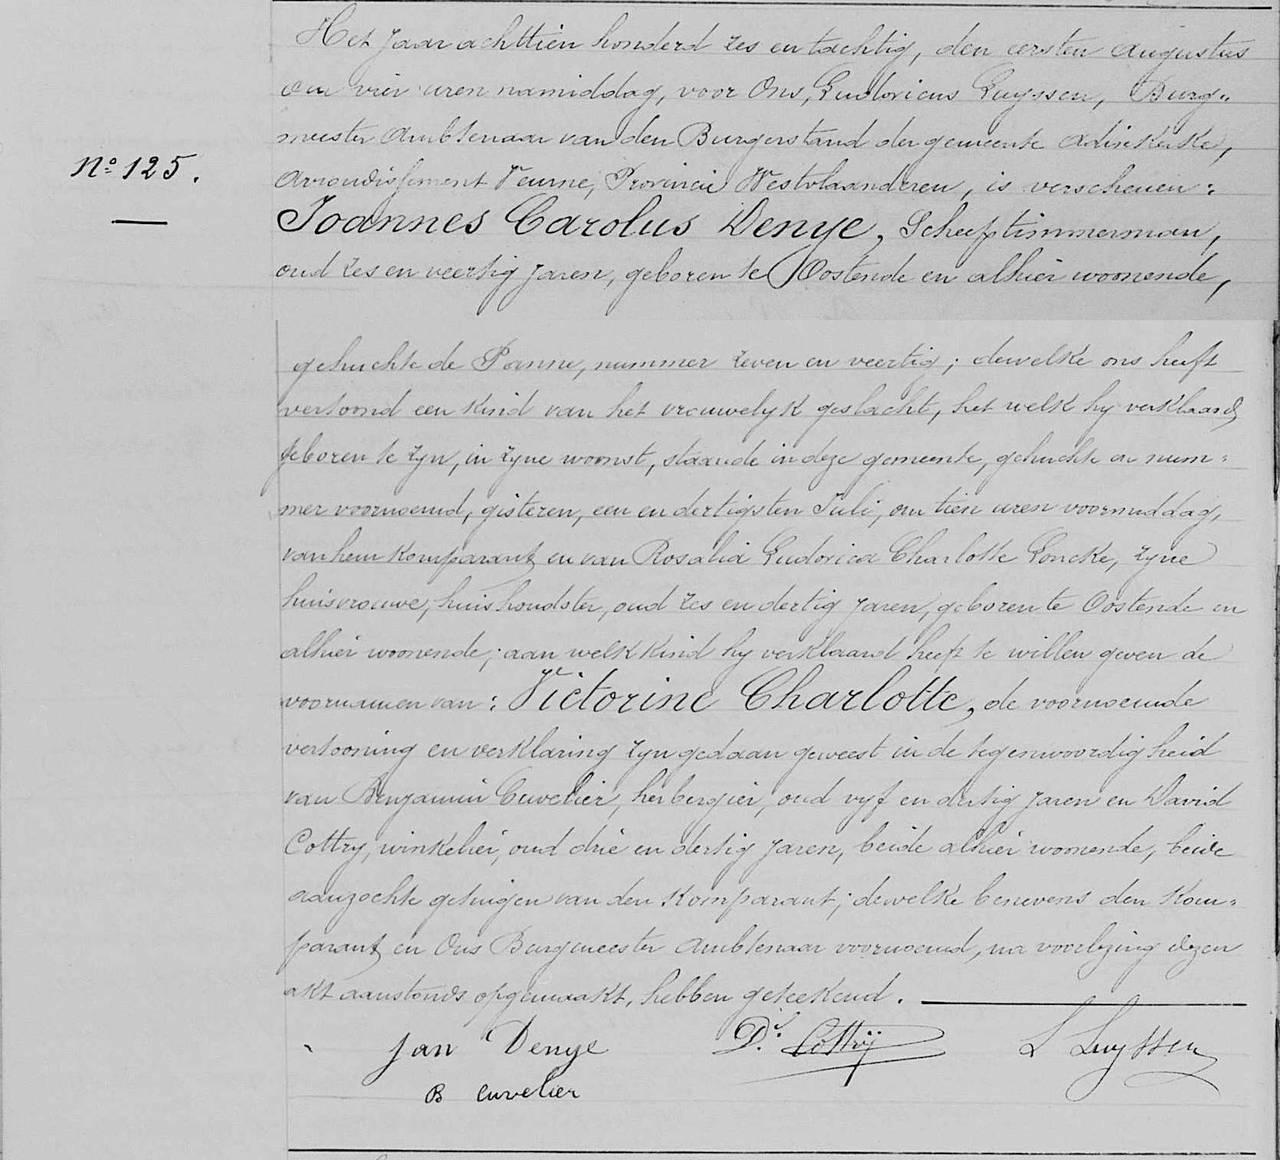 Het jaar achttien honderd zes en tachtig, den eersten augustus
om vier uren namiddag, voor Ons, Ludovicus Luyssen, Burg-
meester Ambtenaar van den Burgerstand der gemeente Adinkerke,
N° 125.
Arrondissement Veurne, Provincie Westvlaanderen, is verschenen:
Joannes Carolus Denye, Scheeptimmerman,
oud zes en veertig jaren, geboren te Oostende en alhier woonende,
gehuchte de Panne, nummer zeven en veertig; dewelke ons heeft
vertoond een kind van het vrouwelyk geslacht, het welk hy verklaard
geboren te zyn, in zyne woonst, staande in deze gemeente, gehuchte en num-
mer voornoemd, gisteren, een en dertigsten Juli, om tien uren voormiddag,
van hem komparant en van Rosalia Ludovica Charlotte Loncke, zyne
huisvrouwe, huishoudster, oud zes en dertig jaren, geboren te Oostende en
alhier woonende; aan welk kind hy verklaard heeft te willen geven de
voornamen van: Victorine Charlotte, de voornoemde
vertooning en verklaring zyn gedaan geweest in de tegenwoordigheid
van Benjamin Cuvelier, herbergier, oud vyf en dertig jaren en David
Cottry, winkelier, oud drie en dertig jaren, beide alhier woonende, beide
aanzochte getuigen van den komparant; dewelke benevens den Kom-
parant en Ons Burgmeester Ambtenaar voornoemd, na voorlezing dezer
akt aanstonds opgemaakt, hebben geteekend.
Jan Denye Dd. Cottrÿ L Luyssen
B Cuvelier